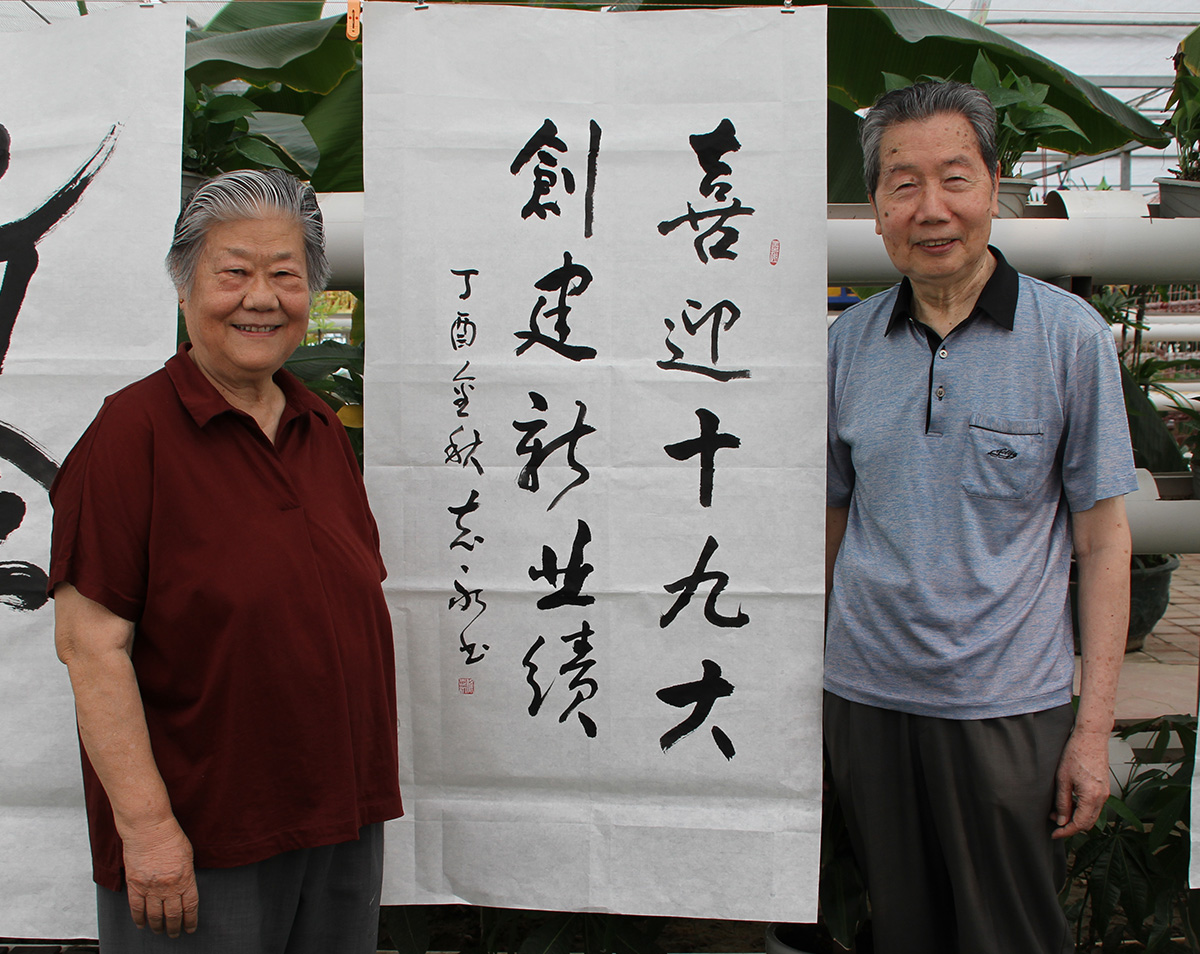 喜迎十九大
創建新业績
丁酉金秋志永书